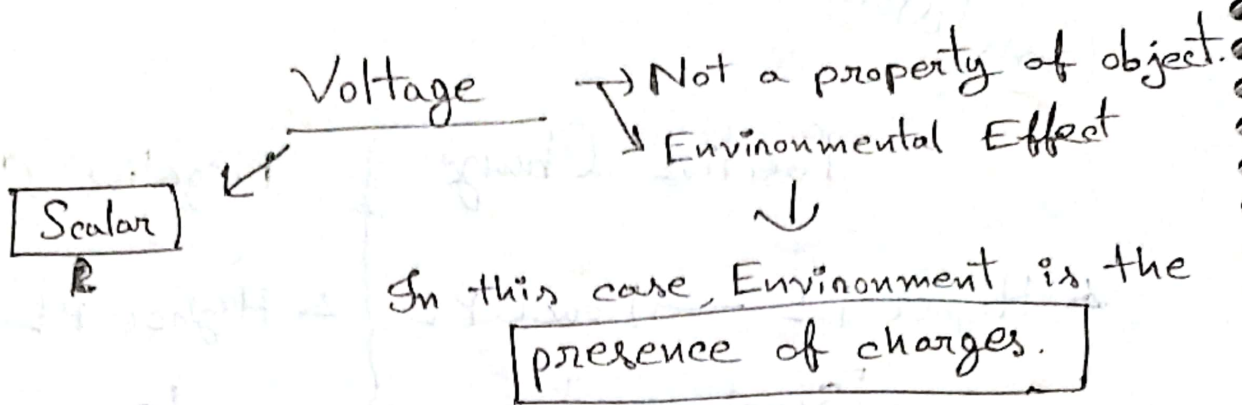 Voltage → Not a property of object.
↘ Environmental Effect
↙
Scalar
↓
In this case, Environment is the
presence of charges.